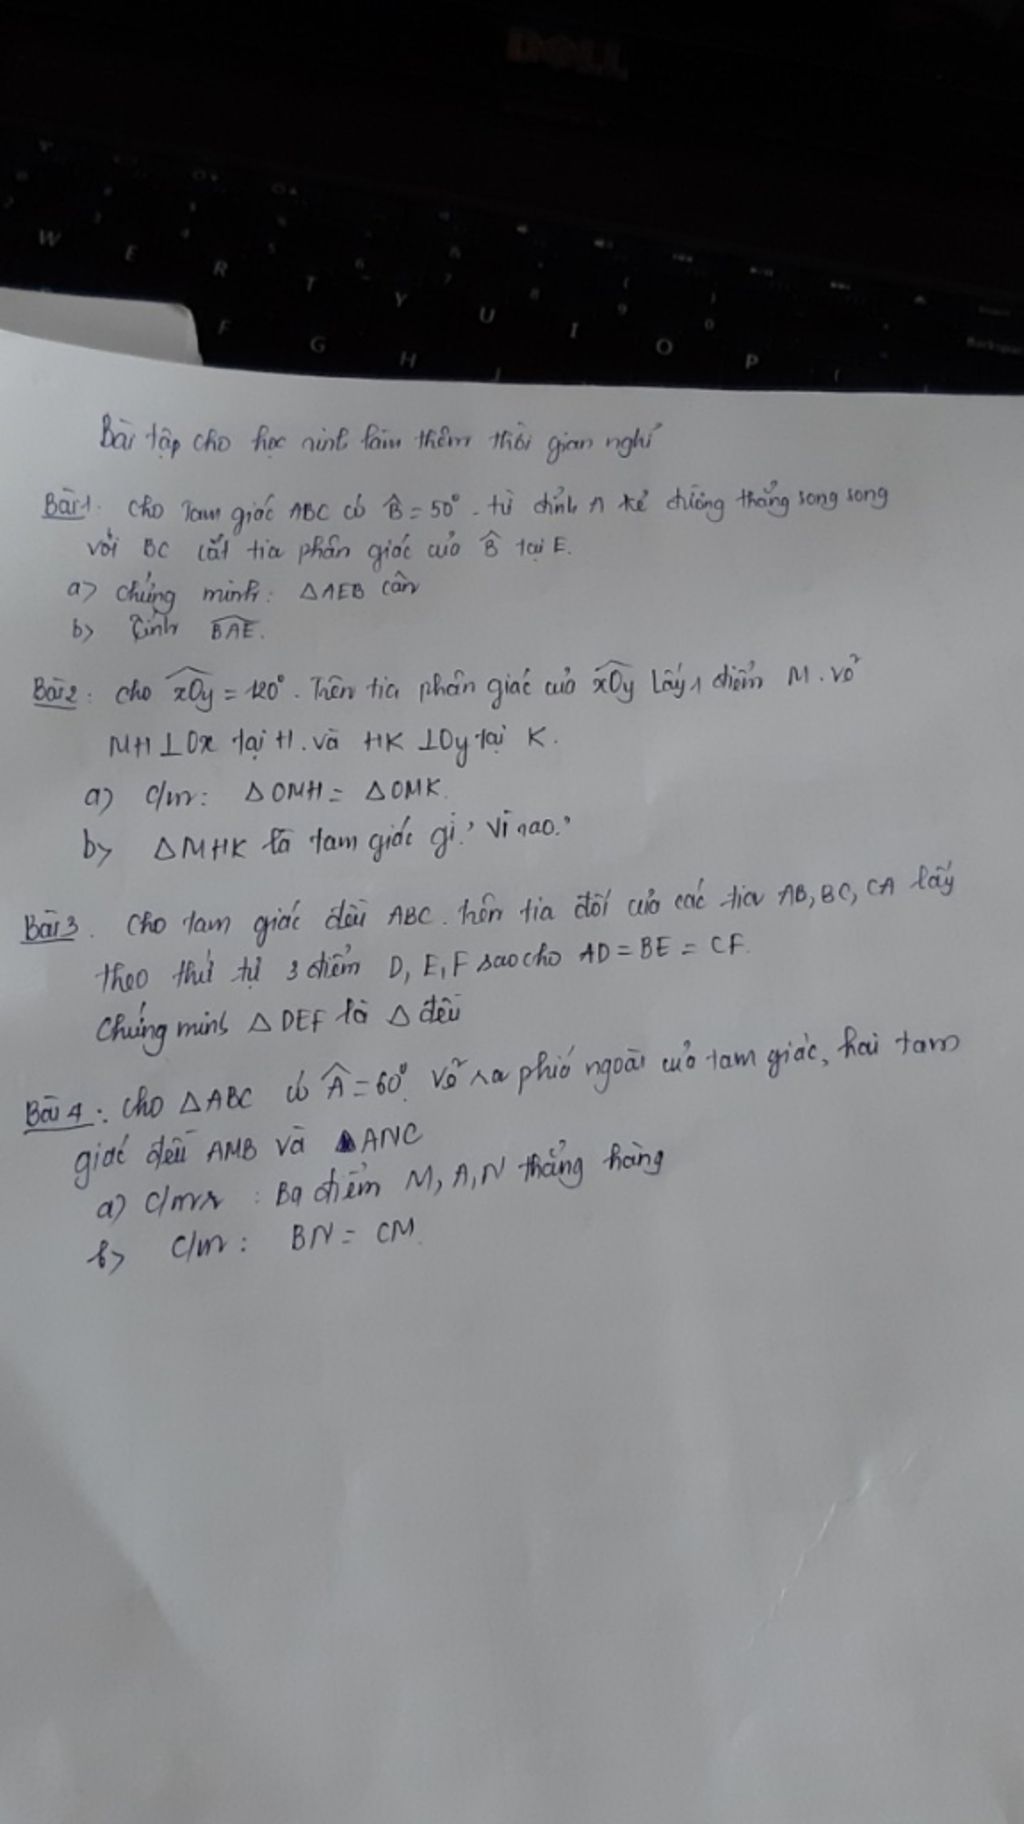 DELL
W E R T Y U I O P
F G H
Bài tập cho học sinh làm thêm thời gian nghỉ
Bài 1. Cho Tam giác ABC có B̂ = 50°. từ đỉnh A kẻ đường thẳng song song
với BC cắt tia phân giác của B̂ tại E.
a) chứng minh: △AEB cân
b) Tính BAE.
Bài 2: Cho xOy = 120°. Trên tia phân giác của xOy lấy 1 điểm M. vẽ
MH ⊥ Ox tại H. và HK ⊥ Oy tại K.
a) c/m: △OMH = △OMK.
b) △MHK là tam giác gì? Vì sao?
Bài 3. Cho tam giác đều ABC. trên tia đối của các tia AB, BC, CA lấy
theo thứ tự 3 điểm D, E, F sao cho AD = BE = CF.
Chứng minh △DEF là △ đều
Bài 4: Cho △ABC có Â = 60°. Vẽ ra phía ngoài của tam giác, hai tam
giác đều AMB và △ANC
a) c/mr : Ba điểm M, A, N thẳng hàng
b) c/m: BN = CM.